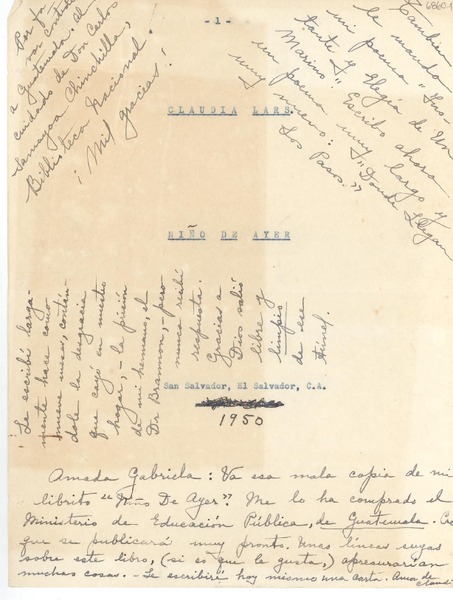 - 1 -
6860-1
Por fa
vor contes
a Guatemala. Al
cuidado de Don Carlos
Samayoa Chinchilla,
Biblioteca Nacional.
¡Mil gracias!
También
le mando
mi poema "Ins
tante y Elegía de Un
Marino". Escribo ahora
un poema muy largo y
muy nuevo: "Donde Llegan
Los Pasos."
CLAUDIA LARS.
NIÑO DE AYER
Le escribí larga-
mente hace como
nueve meses, contán-
dole la desgracia
que cayó en nuestro
hogar, - la prisión
de mi hermano, el
Dr Brannon, - pero
nunca recibí
respuesta.
Gracias a
Dios salió
libre y
limpio
de ese
San Salvador, El Salvador, C.A.
1950
Amada Gabriela: Va esa mala copia de mi
librito "Niño De Ayer". Me lo ha comprado el
Ministerio de Educación Pública, de Guatemala. Creo
que se publicará muy pronto. Unas líneas suyas
sobre este libro, (si es que le gusta,) apresurarían
muchas cosas. - Le escribiré hoy mismo una carta. de
Claudia